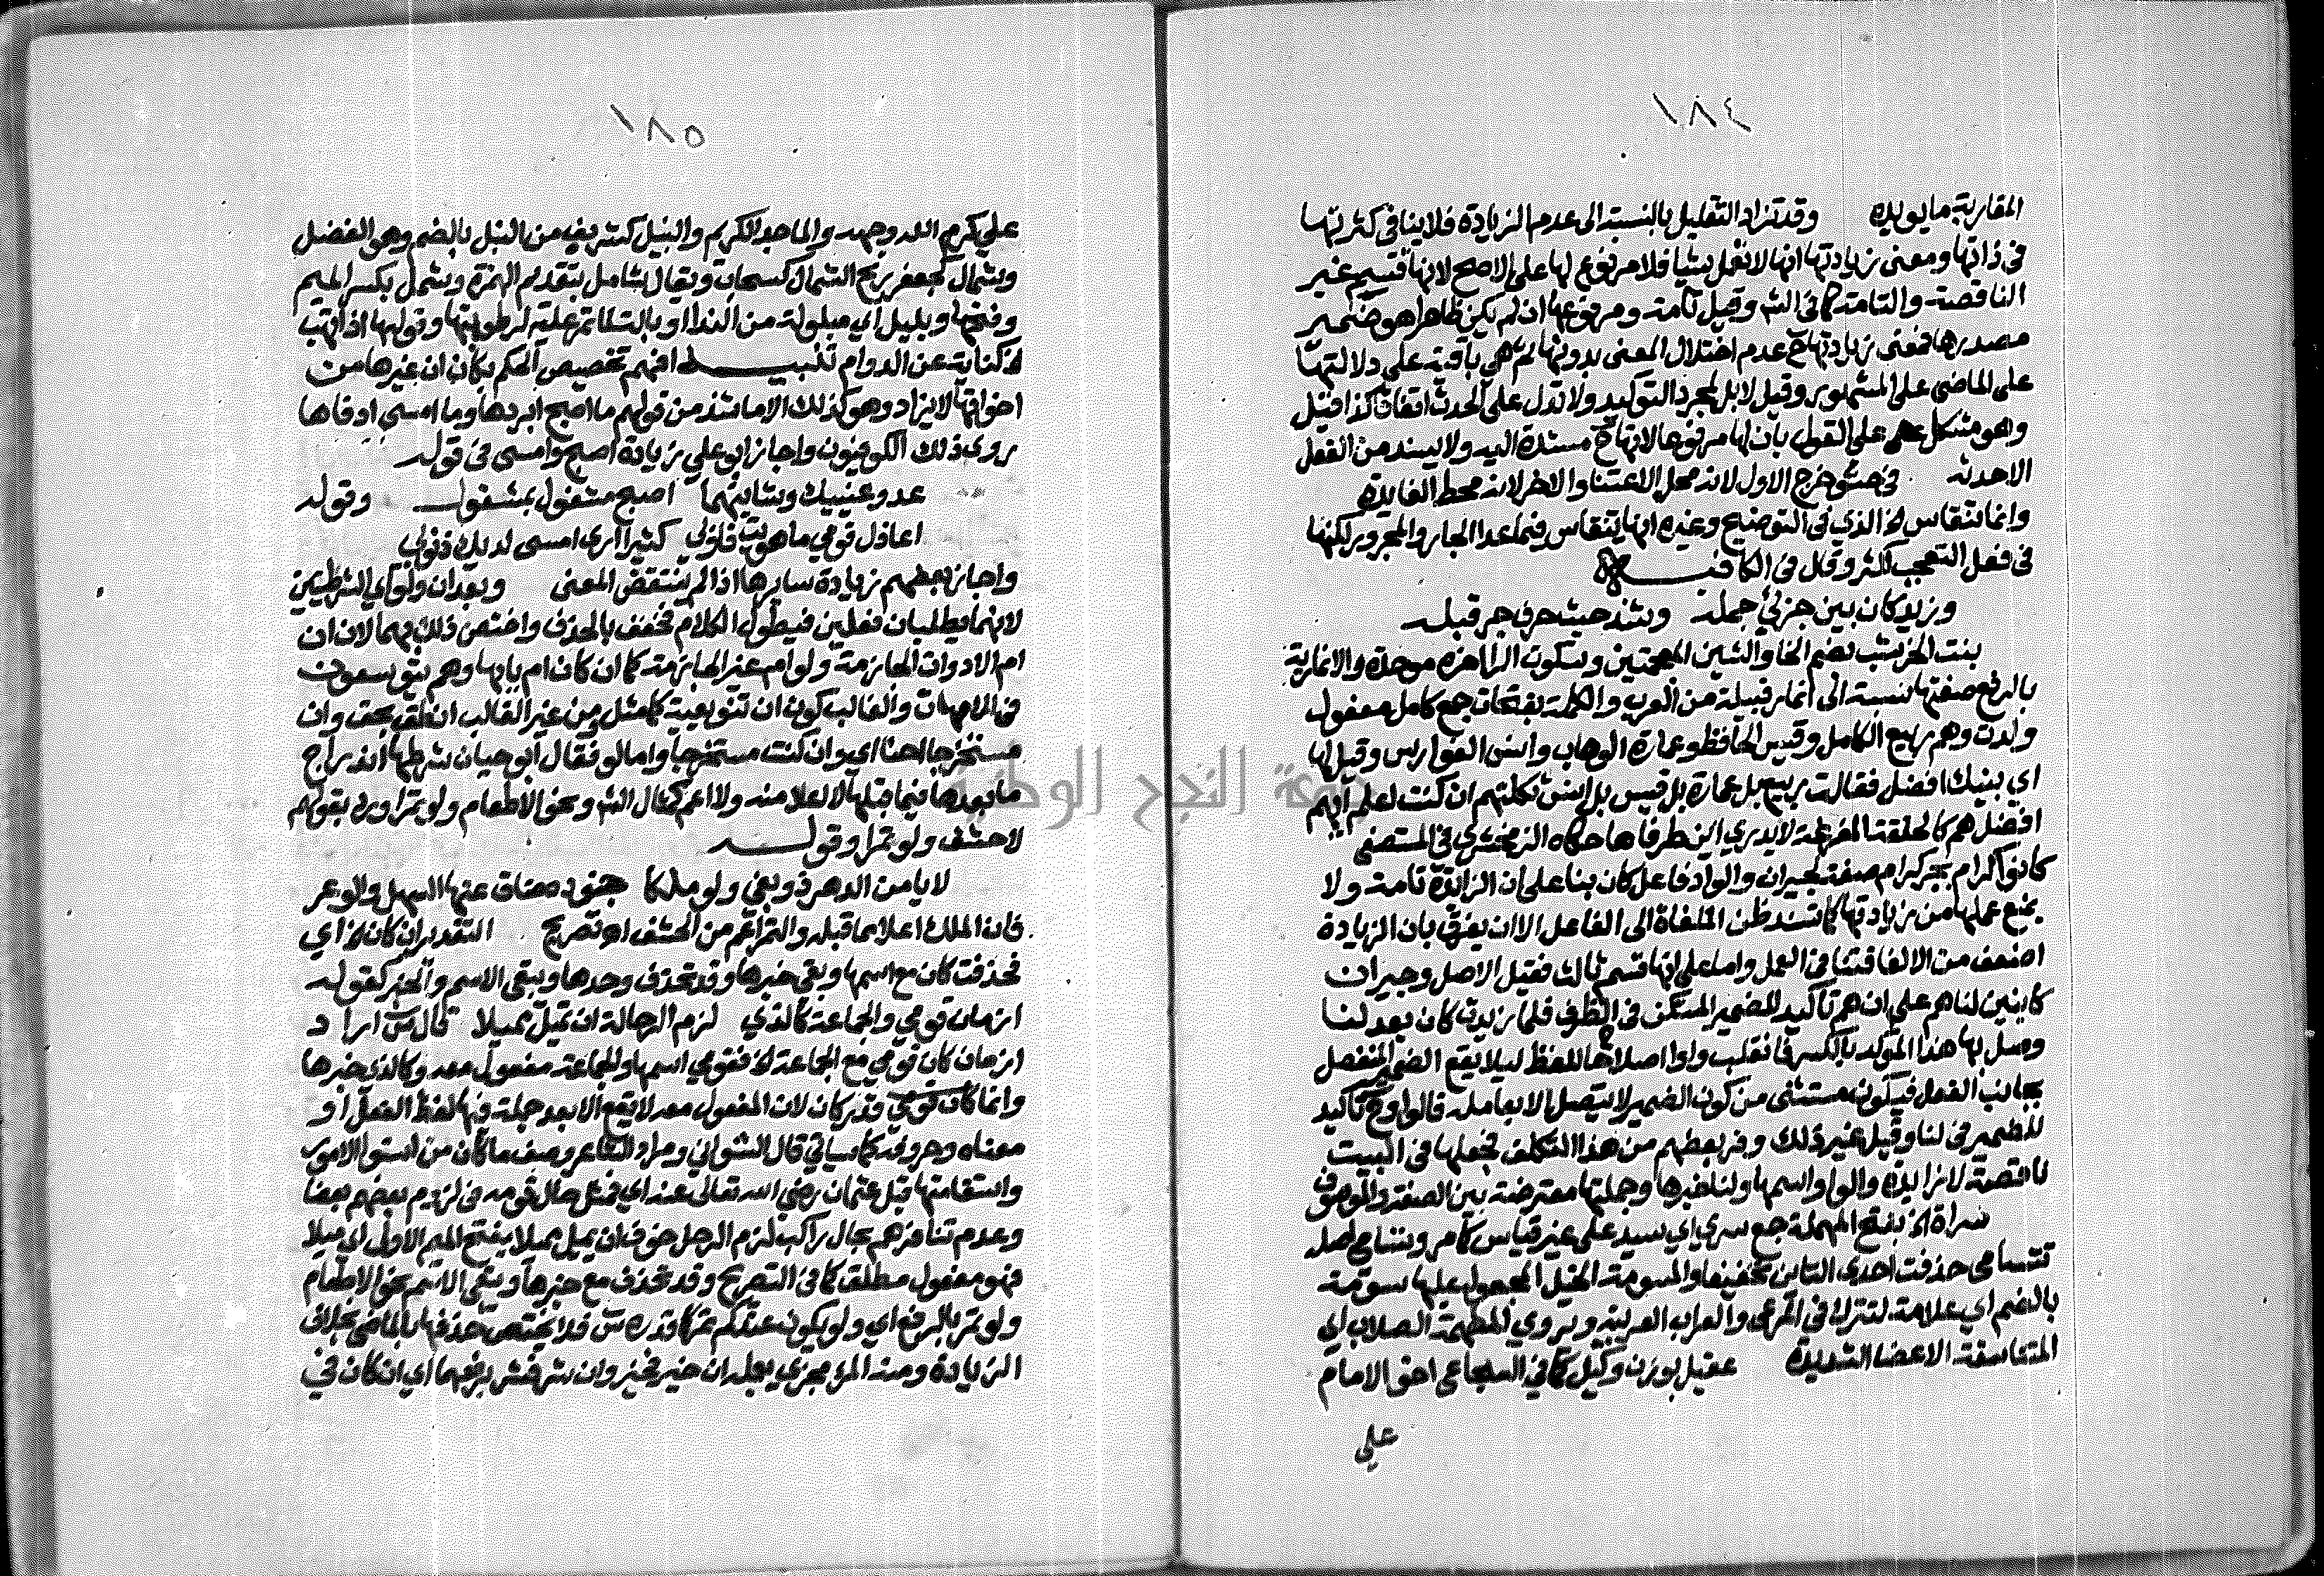 ١٨٤
المقاربة ما يويده وقد تزاد التقليل بالنسبة الى عدم الزيادة فلا ينافي كثرتها
في ذاتها ومعنى زيادتها انها لا تعمل شيا فلا مرفوع لها على الاصح لانها قسيم غير
الناقصة والتامة كما في الش وقيل تامة ومرفوعها ان لم يكن ظاهرا هو ضمير
مصدرها فمعنى زيادتها ح عدم اختلال المعنى بدونها ثم هي باقية على دلالتها
على الماضي على المشهور وقيل لا بل لمجرد التوكيد ولا تدل على الحدث اتفاقا كذا قيل
وهو مشكل على القول بان لها مرفوعا لانها ح مسندة اليه ولا يسند من الفعل
الا حدثه في حشو خرج الاول لانه محل الاعتنا والاخر لانه محط الفايدة
وانما تنقاس الخ الذي في التوضيح وغيره انها تنقاس فيما عدا الجار والمجرور لكنها
في فعل التعجب اكثر وقال في الكافية
وزيد كان بين جزئي جملة وشذ حيث حرف جر قبله
بنت الخرشب بضم الخا والشين المعجمتين وسكون الرا اخره موحدة والانمارية
بالرفع صفتها نسبة الى انمار قبيلة من العرب والكملة بفتحات جمع كامل مفعول
ولدت وهم ربيع الكامل وقيس الحافظ وعمارة الوهاب وانس الفوارس وقيل لها
اي بنيك افضل فقالت ربيع بل عمارة بل قيس بل انس ثكلتهم ان كنت اعلم ايهم
افضل هم كالحلقة المفرغة لا يدري اين طرفاها حكاه الزمخشري في المستصفى
كانوا كرام بجر كرام صفة لجيران والواو فاعل كان بنا على ان الزائدة تامة ولا
يمنع عملها من زيادتها كما تسند ظن الملغاة الى الفاعل الا ان يفرق بان الزيادة
اضعف من الالغا قتنا في العمل واما على انها قسم ثالث فقيل الاصل وجيران
كاينين لنا هم على ان هم تاكيد للضمير المستكن في الظرف فلما زيدت كان بعد لنا
وصل بها هذا المؤكد بالكسر فانقلب واوا اصلاحا للفظ ليلا يقع الضمير المنفصل
بجانب الفعل فيكون مستثنى من كون الضمير لا يتصل الا بعامله فالواو ح تاكيد
للضمير في لنا وقيل غير ذلك وفر بعضهم من هذا التكلف فجعلها في البيت
ناقصة لا زايدة والواو اسمها ولنا خبرها وجملتها معترضة بين الصفة والموصوف
سراة الخ بفتح المهملة جمع سري اي سيد على غير قياس كما مر وتسامى اصله
تتسامى حذفت احدى التاين تخفيفا والمسومة الخيل المجعول عليها سومة
بالضم اي علامة لتترك في المرعى والعراب العربية ويروي المطهمة الصلاب اي
المتناسقة الاعضا الشديدة عقيل بوزن وكيل كما في السجاعي اخو الامام
على
١٨٥
علي كرم الله وجهه والماجد الكريم والنبيل كشريف من النبل بالضم وهو الفضل
وشمال كجعفر ريح الشمال كسحاب ويقال شامل بتقديم الهمزة وشمل بكسر الميم
وفتحها وبليل اي مبلولة من الندا او بالتلا تمر عليه لرطوبتها وقولها اذا تهب
الخ كناية عن الدوام تنبيه افهم تخصيص الحكم بكان ان غيرها من
اخواتها لا يزاد وهو كذلك الا ما شذ من قولهم ما اصبح ابردها وما امسى ادفاها
روى ذلك الكوفيون واجاز ابو علي زيادة اصبح وامسى في قوله
عدو عينيك وشانيهما اصبح مشغول بمشغول وقوله
اعاذل قومي ما هويت فاوبي كثيرا ارى امسى لديك ذنوبي
واجاز بعضهم زيادة سايرها اذا لم ينتقض المعنى وبعد ان ولو اي الشرطيتين
لانهما يطلبان فعلين فيطول الكلام فخفف بالحذف واختص ذلك بهما لان ان
ام الادوات الجازمة ولو ام غير الجازمة كما ان كان ام بابها وهم يتوسعون
في الامهات والغالب كون ان تنويعية كما مثل ومن غير الغالب انطلق بحق وان
مستخرجا احنا اي وان كنت مستخرجا واما لو فقال ابو حيان شرطها اندراج
ما بعدها فيما قبلها لا اعلا منه ولا اعم كمثال الش ونحو الاطعام ولو تمرا ورد بقولهم
لا حشف ولو تمرا وقوله
لا يامن الدهر ذو بغي ولو ملكا جنوده ضاق عنها السهل والوعر
فان الملك اعلا مما قبله والتمر اعم من الحشف اه تصريح التقدير ان كان الخ اي
فحذفت كان مع اسمها وبقي خبرها وقد تحذف وحدها ويبقى الاسم والخبر كقوله
ازمان قومي والجماعة كالذي لزم الرحالة ان تميل مميلا قال س اراد
ازمان كان قومي مع الجماعة الخ فقومي اسمها والجماعة مفعول معه وكالذي خبرها
وانما كان قومي قدر كان لان المفعول معه لا يقع الا بعد جملة فيها لفظ الفعل او
معناه وحروفه كما سياتي قال الشواني ومراد الشاعر وصف ما كان من استوا الامور
واستقامتها قبل عثمان رضي الله تعالى عنه اي فمثل حال قومه في لزوم بعضهم بعضا
وعدم تنافرهم بحال راكب لزم الرحل خوف ان يميل مميلا بفتح الميم الاولى اي ميلا
فهو مفعول مطلق كما في التصريح وقد تحذف مع خبرها ويبقى الاسم نحو الاطعام
ولو تمر بالرفع اي ولو يكون عندكم تمر كما قدره س فلا يختص حذفها بالماضي بخلاف
الزيادة ومنه المرء مجزي بعمله ان خير فخير وان شر فشر برفعهما اي ان كان في